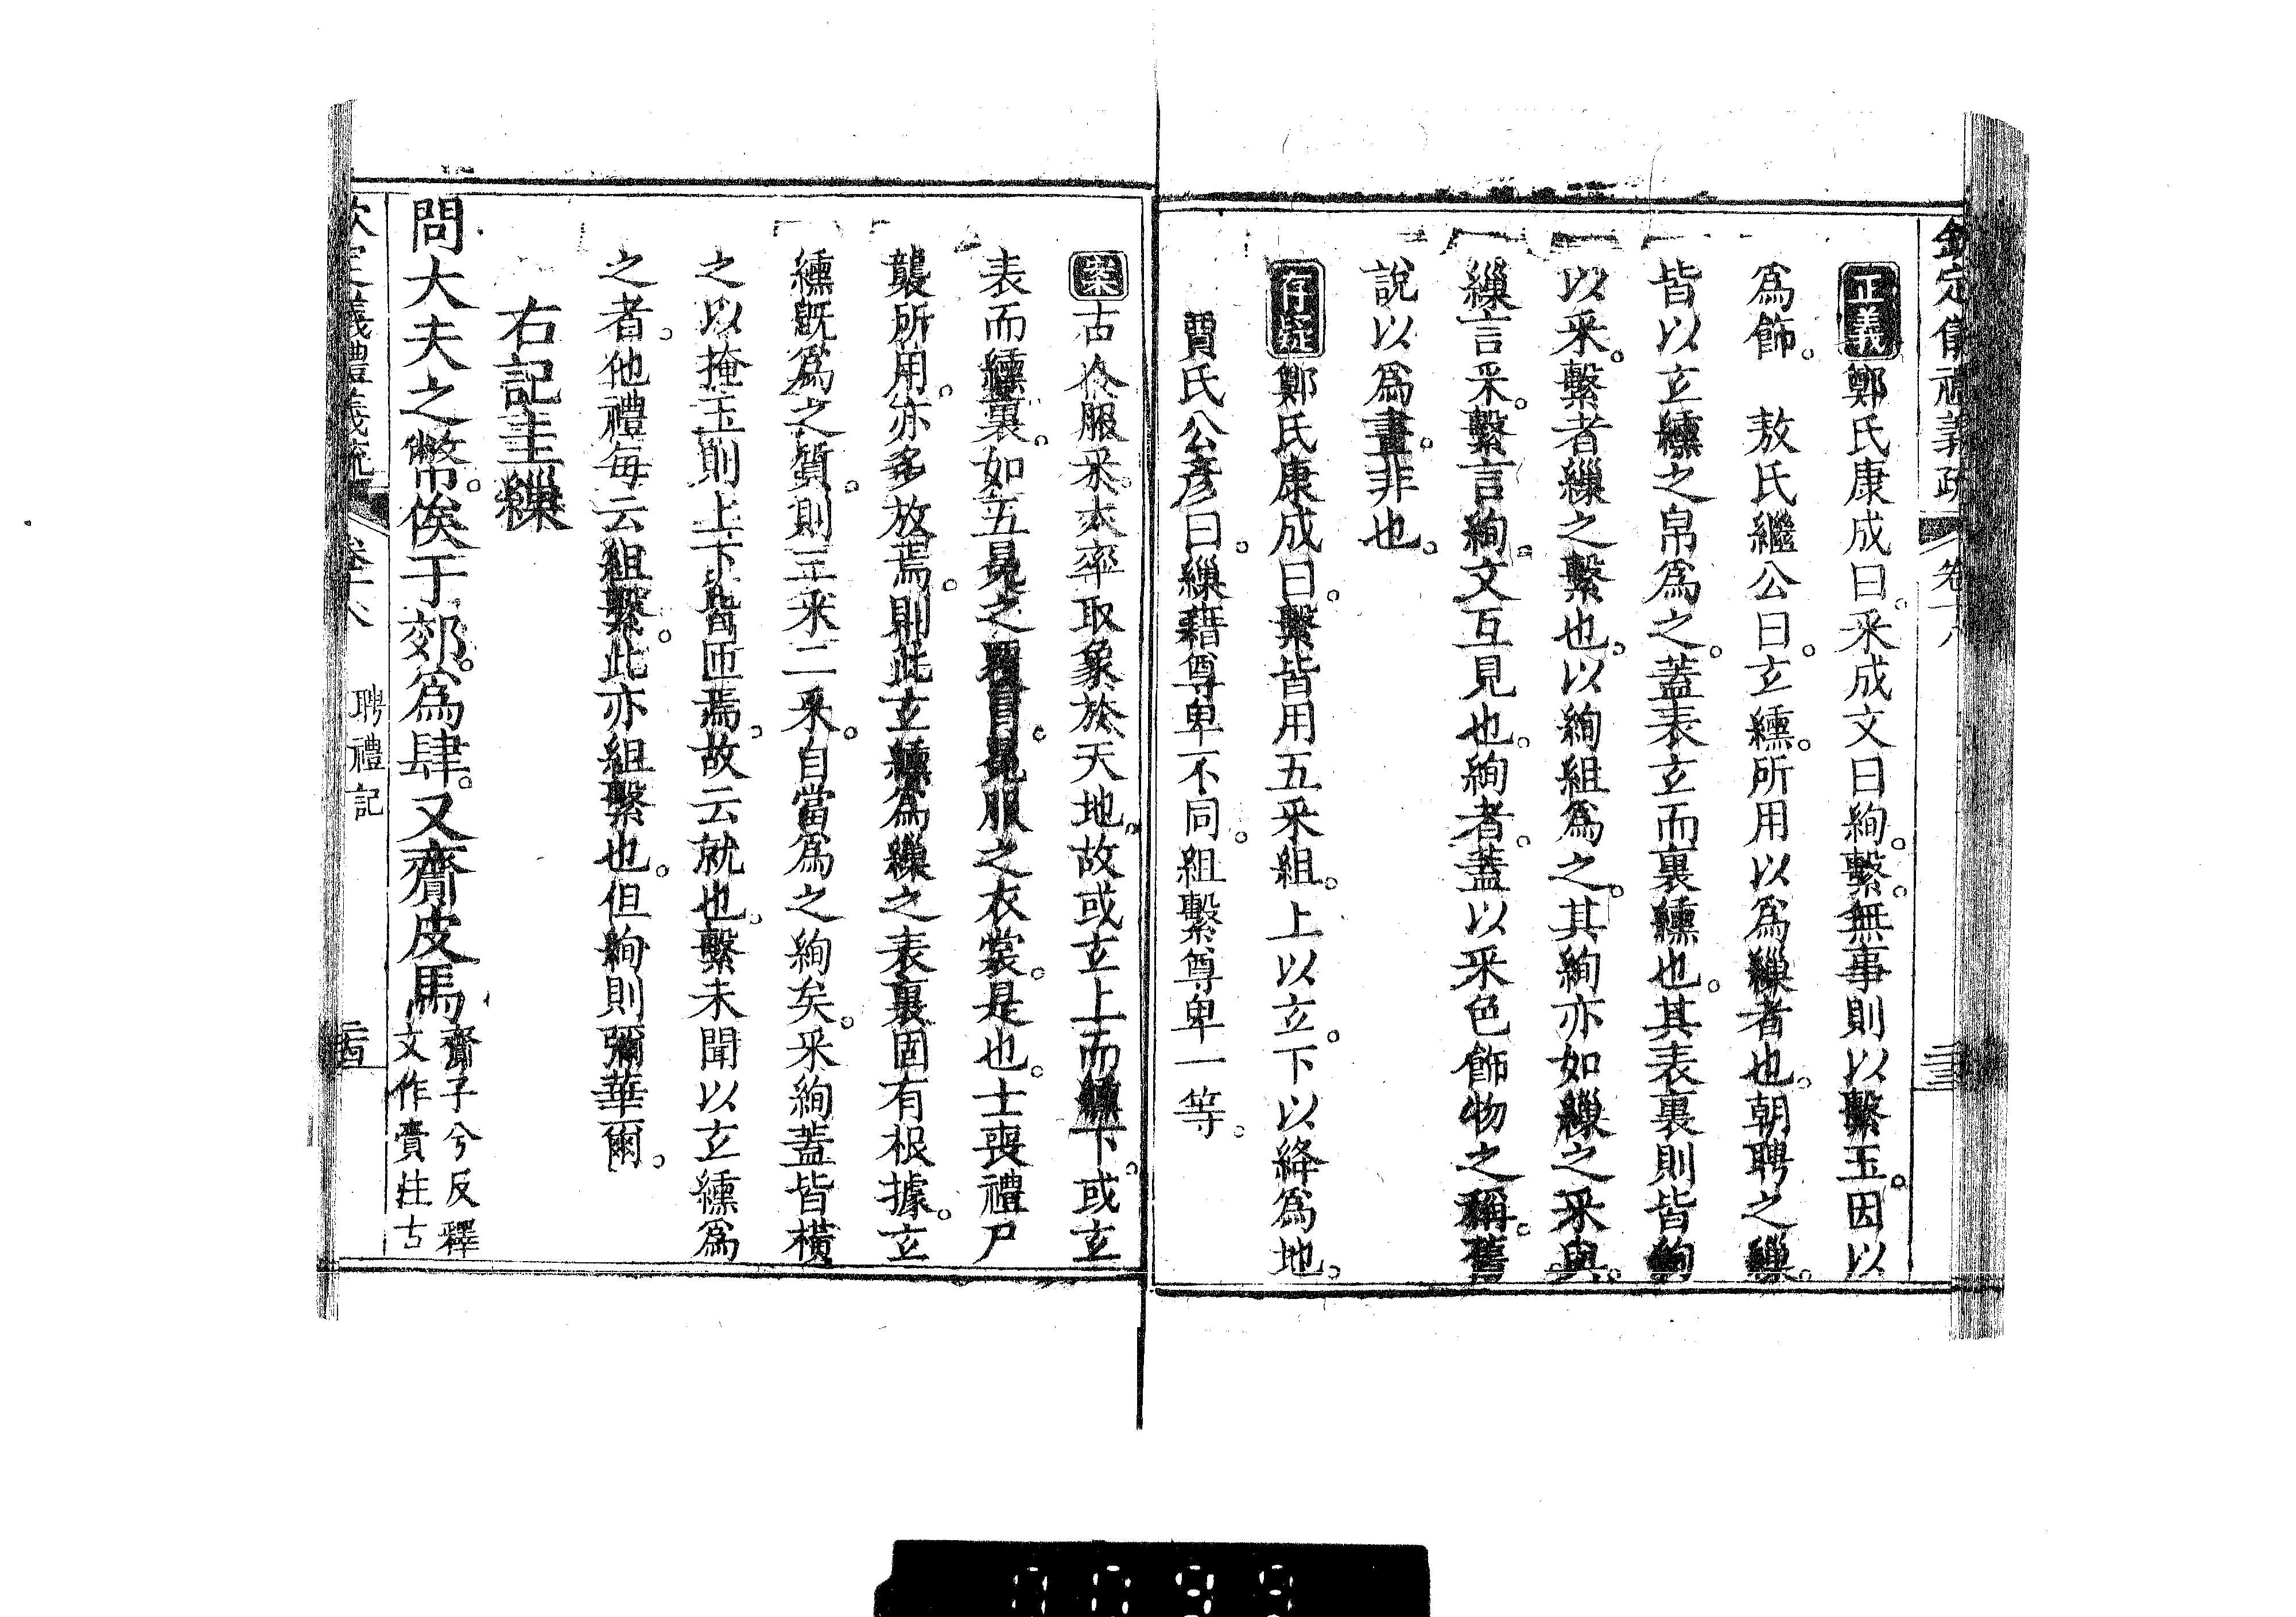 欽定儀禮義疏 卷十八
正義鄭氏康成曰采成文曰絢繫無事則以繫玉因以
爲飾 敖氏繼公曰玄纁所用以爲繅者也朝聘之繅
皆以玄纁之帛爲之蓋表玄而裏纁也其表裏則皆絢
以采繫者繅之繫也以絢組爲之其絢亦如繅之采與
繅言采繫言絢文互見也絢者蓋以采色飾物之稱舊
說以爲畫非也
存疑鄭氏康成曰繫皆用五采組上以玄下以絳爲地
賈氏公彥曰繅藉尊卑不同組繫尊卑一等
案古人服采大率取象於天地故或玄上而纁下或玄
表而纁裏如五冕之 冕服之衣裳是也士喪禮尸
襲所用亦多放焉則此玄纁爲繅之表裏固有根據玄
纁既爲之質則三采二采自當爲之絢矣采絢蓋皆橫
之以掩玉則上下皆匝焉故云就也繫未聞以玄纁爲
之者他禮每云組繫此亦組繫也但絢則彌華爾
右記圭繅
問大夫之幣俟于郊爲肆又齎皮馬 齎子兮反釋
文作賷注古
欽定儀禮義疏 卷十八 聘禮記